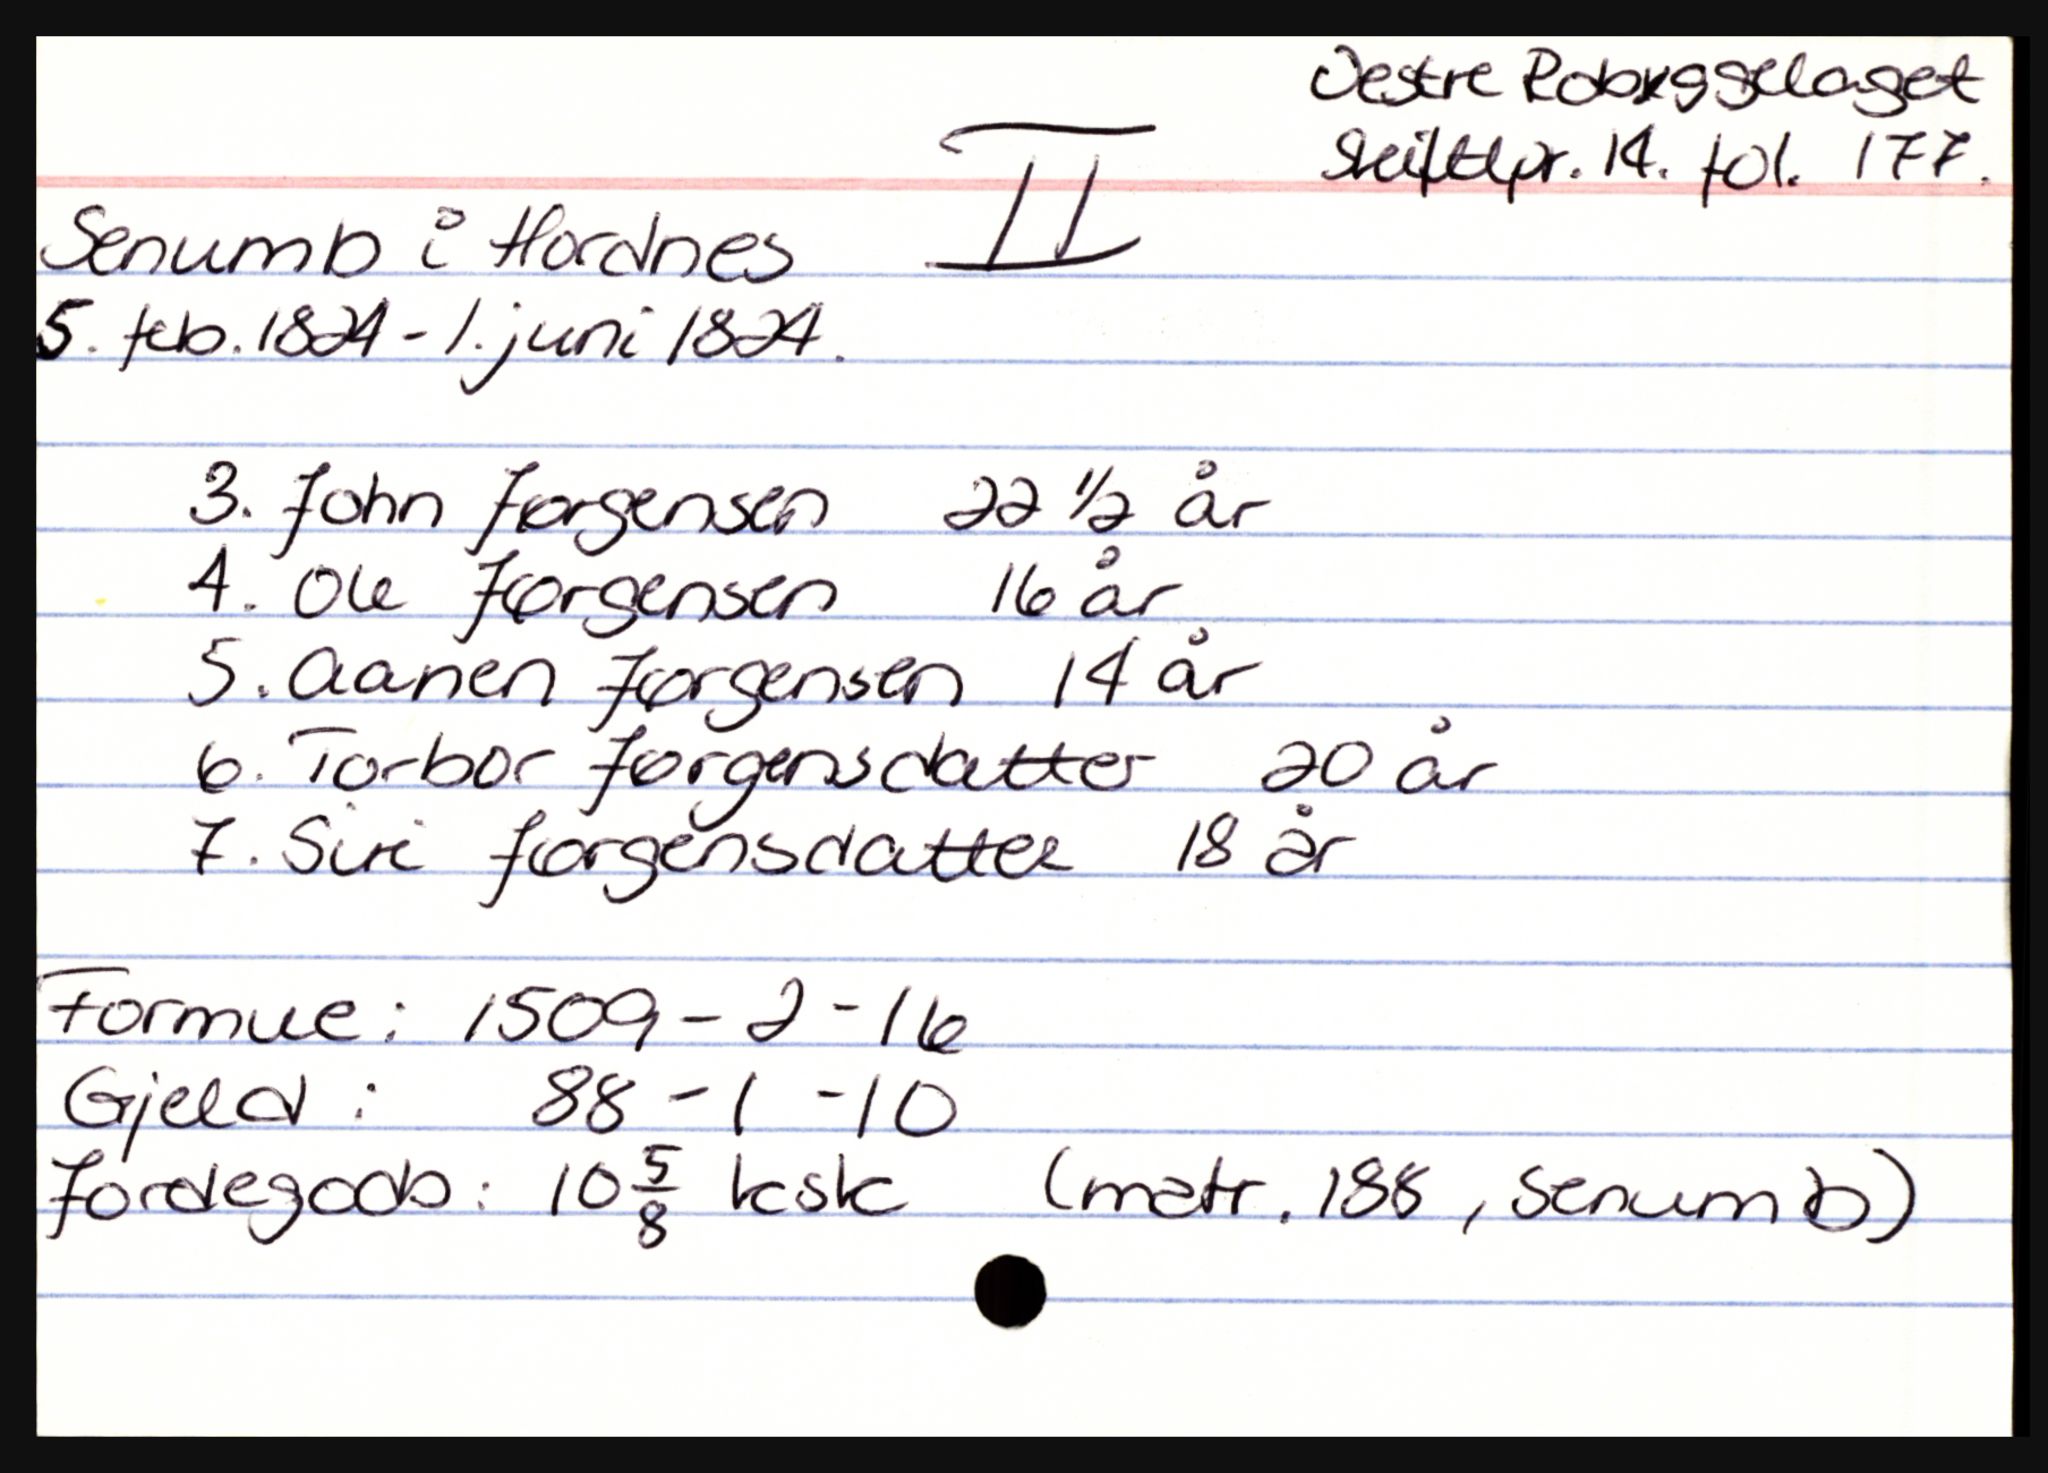 Vestre Robyggelaget
Skiftepr. 14. fol. 177.
II
Senumb i Hordnes
5. feb. 1824 - 1. juni 1824.
3. John Jørgensen 22 1/2 år
4. Ole Jørgensen 16 år
5. Aanen Jørgensen 14 år
6. Torbor Jørgensdatter 20 år
7. Siri Jørgensdatter 18 år
Formue: 1509 - 2 - 16
Gjeld: 88 - 1 - 10
Jordegods: 10 5/8 ksk (matr. 188, Senumb)